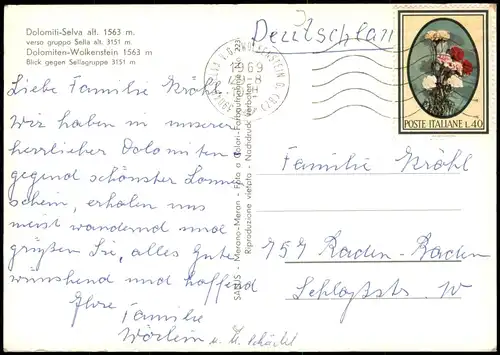 Dolomiti-Selva alt. 1563 m.
verso gruppo Sella alt. 3151 m.
Dolomiten-Wolkenstein 1563 m
Blick gegen Sellagruppe 3151 m.
Deutschlan
1969
POSTE ITALIANE L.40
Liebe Familie Kröhl.
Wir haben in unserer
herrlicher Dolomiten
gegend schönster Sonnen
schein, erholen uns
meist wandernd und
grüßen Sie, alles Gute
wünschend und hoffend
Ihre
Familie
Wörlein u. M. Schächtel
SAMAS - Merano-Meran - Foto a Colori-Farbaufnahme
Riproduzione vietata - Nachdruck verboten
Familie Kröhl
757 Baden-Baden
Schloßstr. 10